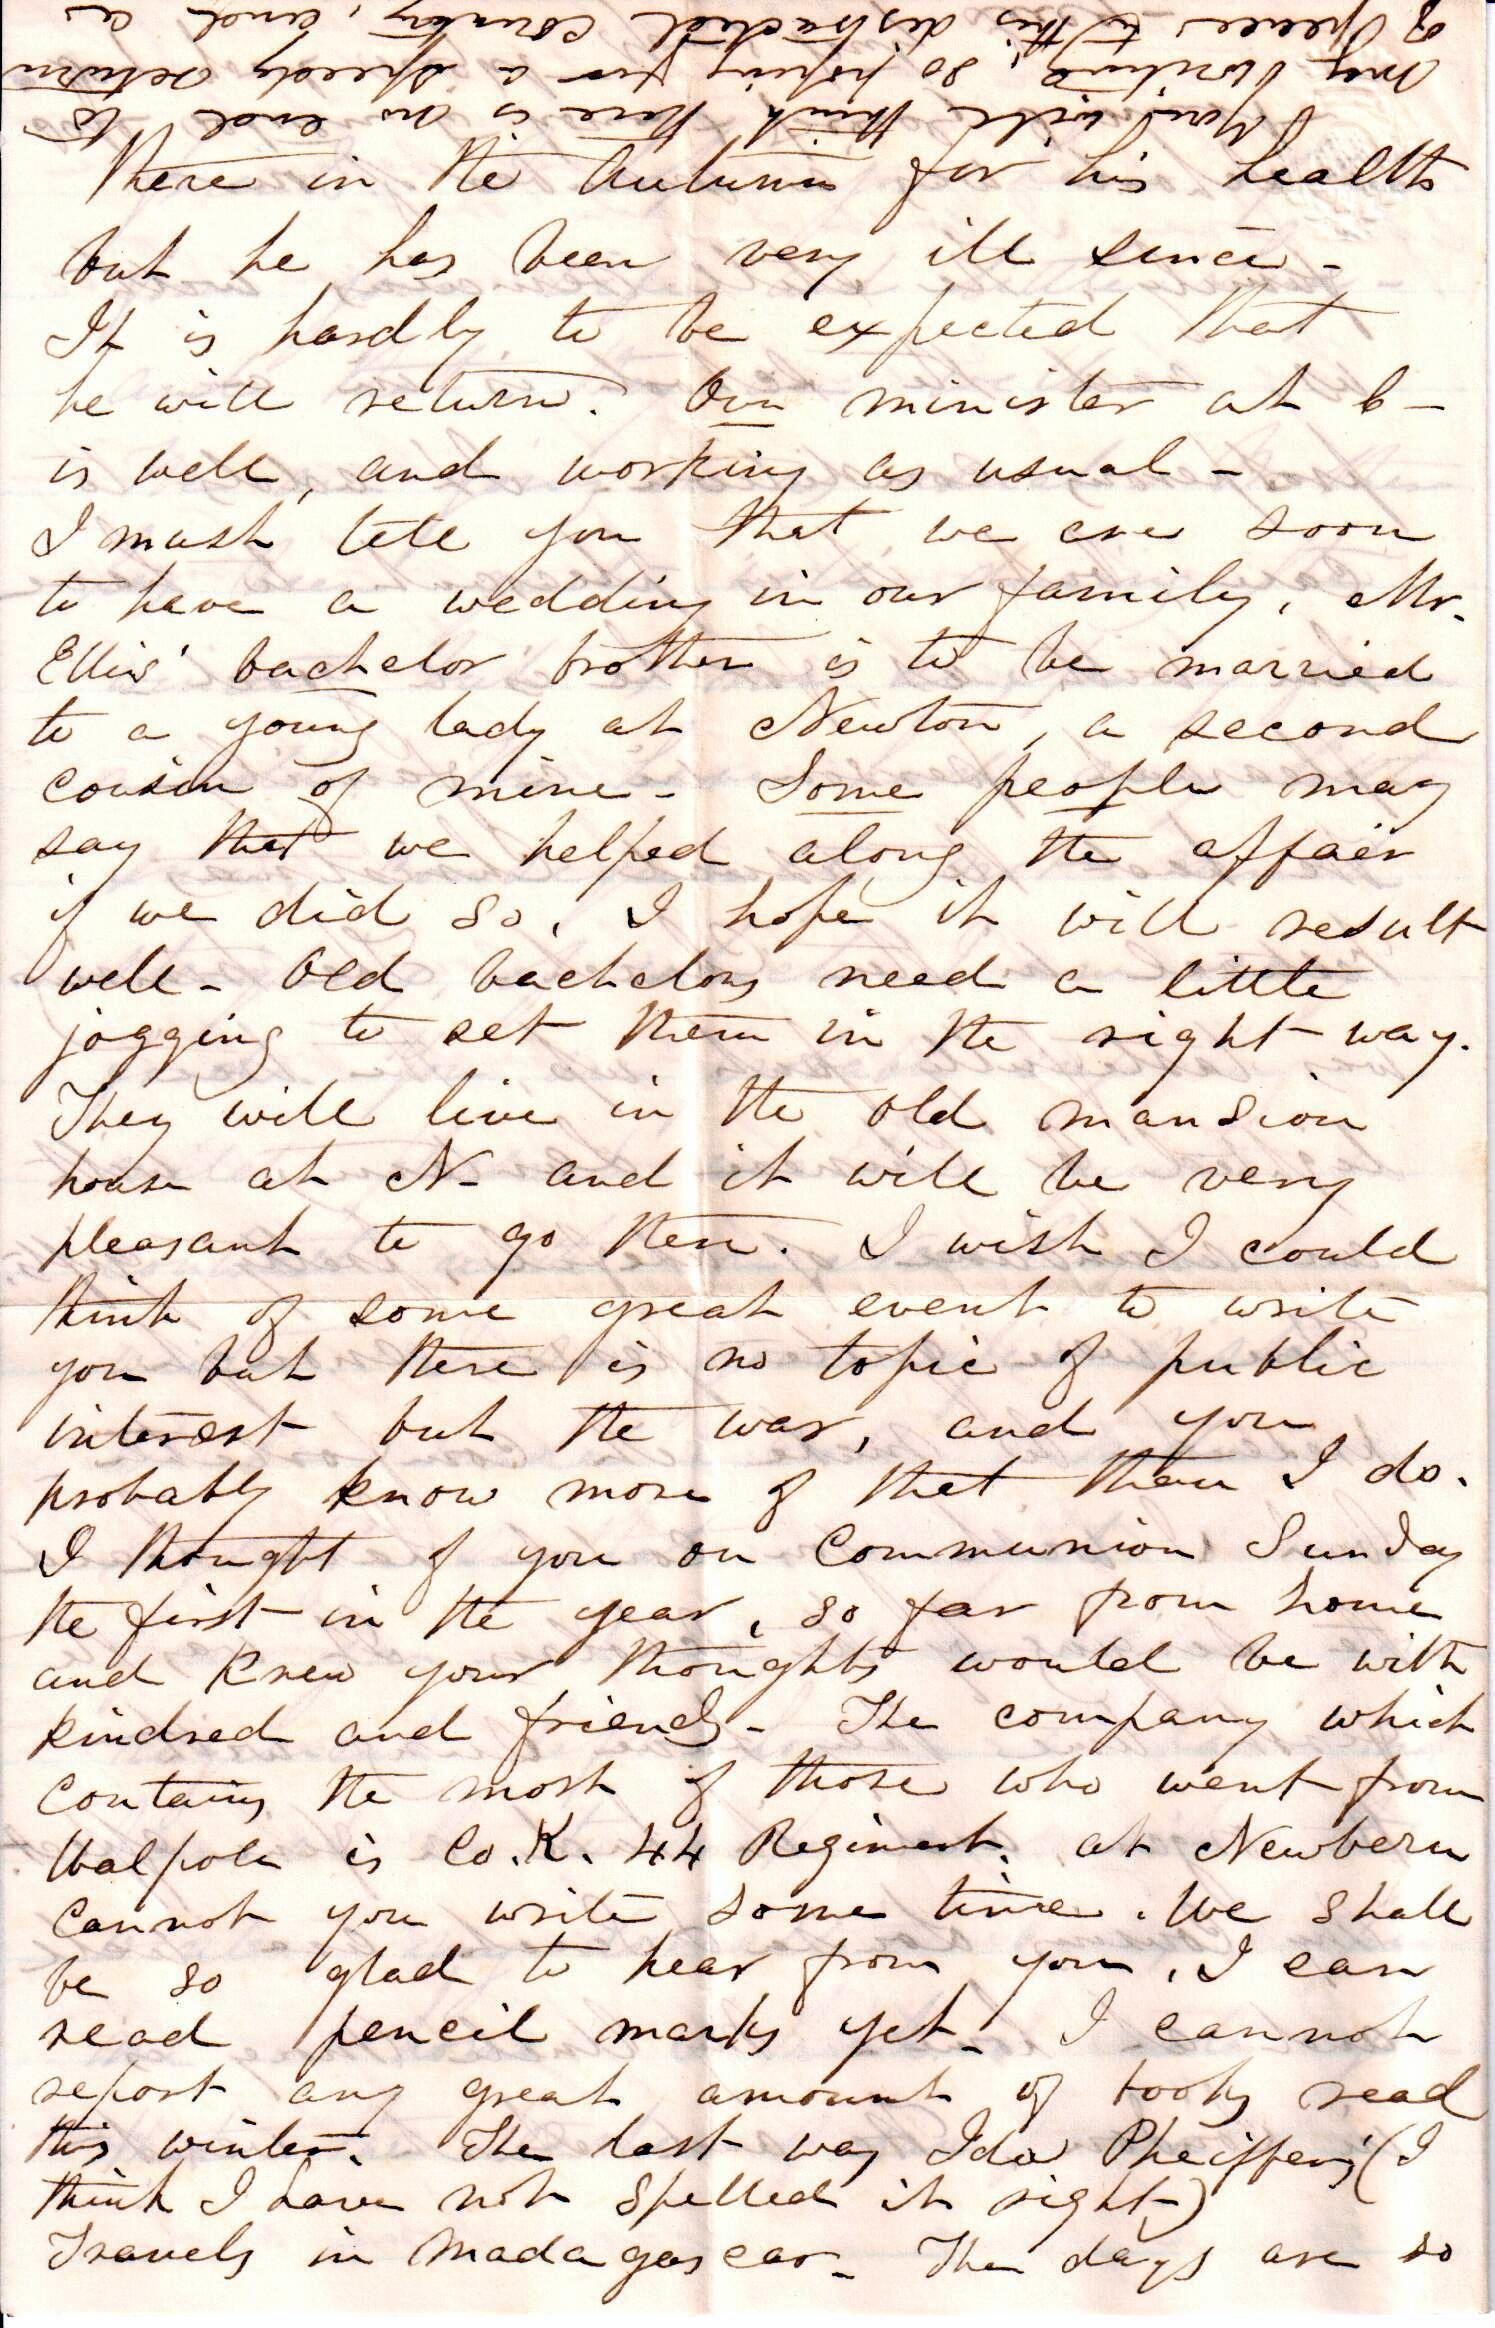 there in the Autumn for his health
but he has been very ill since -
It is hardly to be expected that
he will return. Our minister at C -
is well, and working as usual -
I must tell you that we are soon
to have a wedding in our family, Mr.
Ellis' bachelor brother is to be married
to a young lady at Newton, a second
cousin of mine - Some people may
say that we helped along the affair
if we did so, I hope it will result
well - Old bachelors need a little
jogging to set them in the right way.
They will live in the old mansion
house at N - and it will be very
pleasant to go there. I wish I could
think of some great event to write
you but there is no topic of public
interest but the war, and you
probably know more of that than I do.
I thought of you on Communion Sunday
the first in the year, so far from home
and knew your thoughts would be with
kindred and friends - The company which
contains the most of those who went from
Walpole is Co. K. 44 Regiment. at Newbern
Cannot you write some time. We shall
be so glad to hear from you, I can
read pencil marks yet - I cannot
report any great amount of books read
this winter. The last was Ida Pheiffers' (I
think I have not spelled it right)
Travels in Madagascar - The days are so
You will think there is no end to
my writing, so hoping for a speedy return
of peace to this distracted country, and a